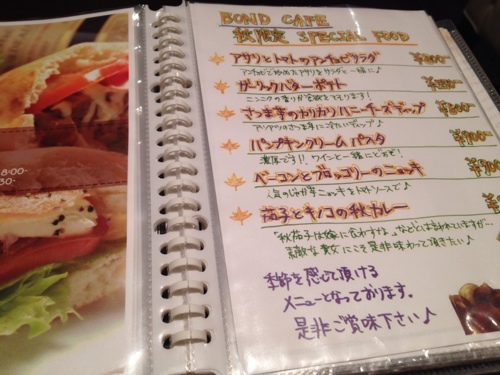 BOND CAFE
秋限定 SPECIAL FOOD
アサリとトマトのアンチョビサラダ
アンチョビで炒めたアサリをサラダと一緒に♪
ガーリックバターポテト
ニンニクの香りが食欲をそそります!
さつま芋のカリカリハニーチーズディップ
カリカリのさつま芋に
ディップ♪
パンプキンクリームパスタ
濃厚です!! ワインと一緒にどうぞ!
ベーコンとブロッコリーのニョッキ
人気のじゃが芋ニョッキをトマトソースで♪
茄子とキノコの秋カレー
「秋茄子は嫁に食わすな。」などとは言われていますが…
素敵な貴女にこそ是非味わって頂きたい♪
季節を感じて頂ける
メニューとなっております。
是非ご賞味下さい♪
8:00-
30-